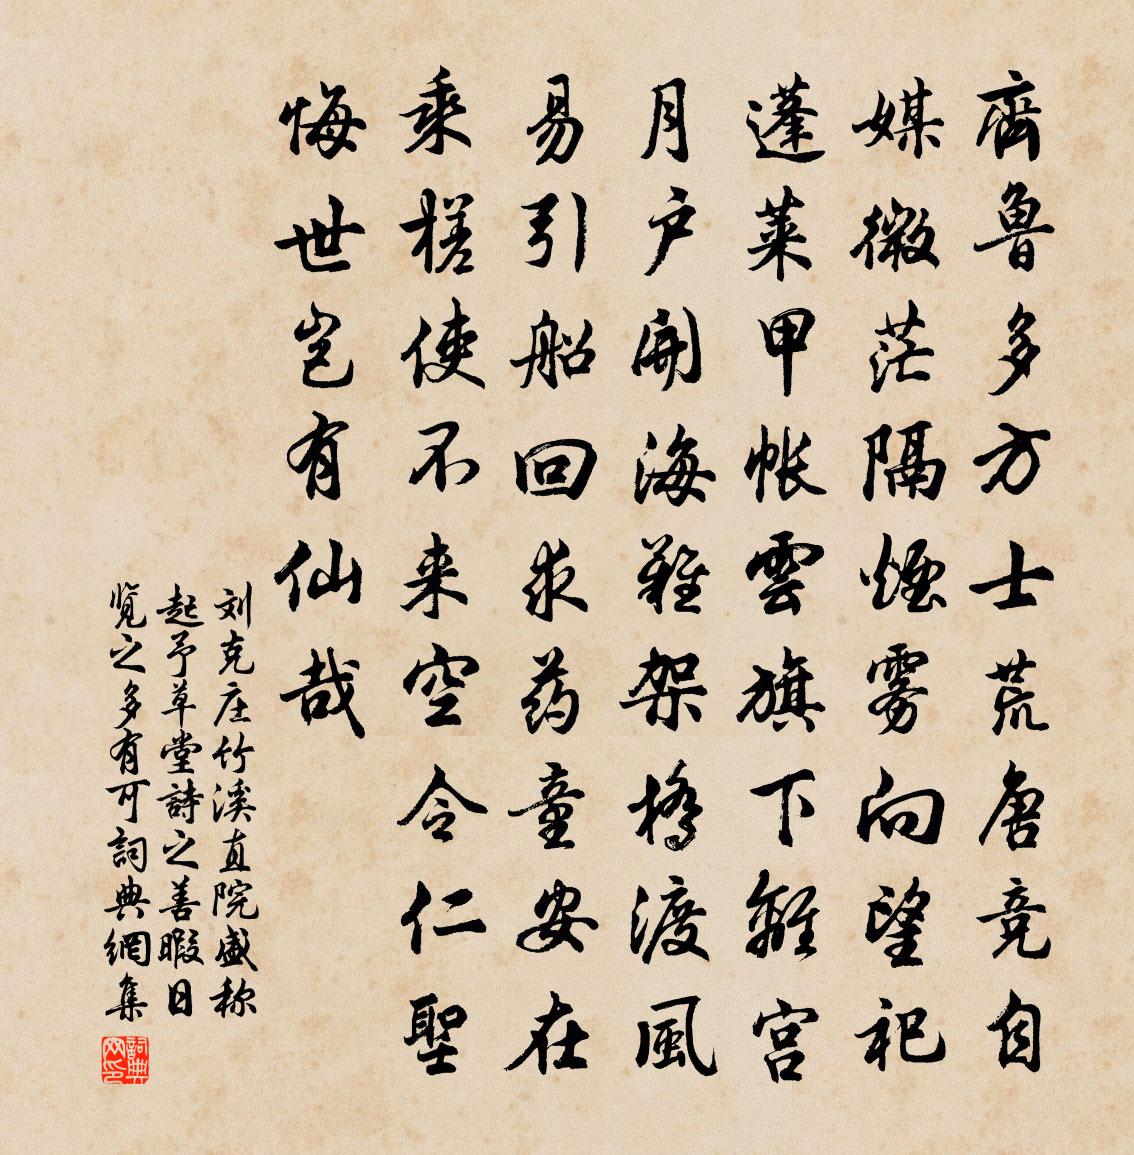 齊魯多方士荒唐竞自
媒微茫隔煙雾向望祀
蓬萊甲帐雲旗下離宫
月户開海難架橋渡風
易引船回求药童安在
乘槎使不来空令仁聖
悔世岂有仙哉
刘克庄竹溪直院盛称
起予草堂詩之善暇日
览之多有可詞典網集
詞典网印